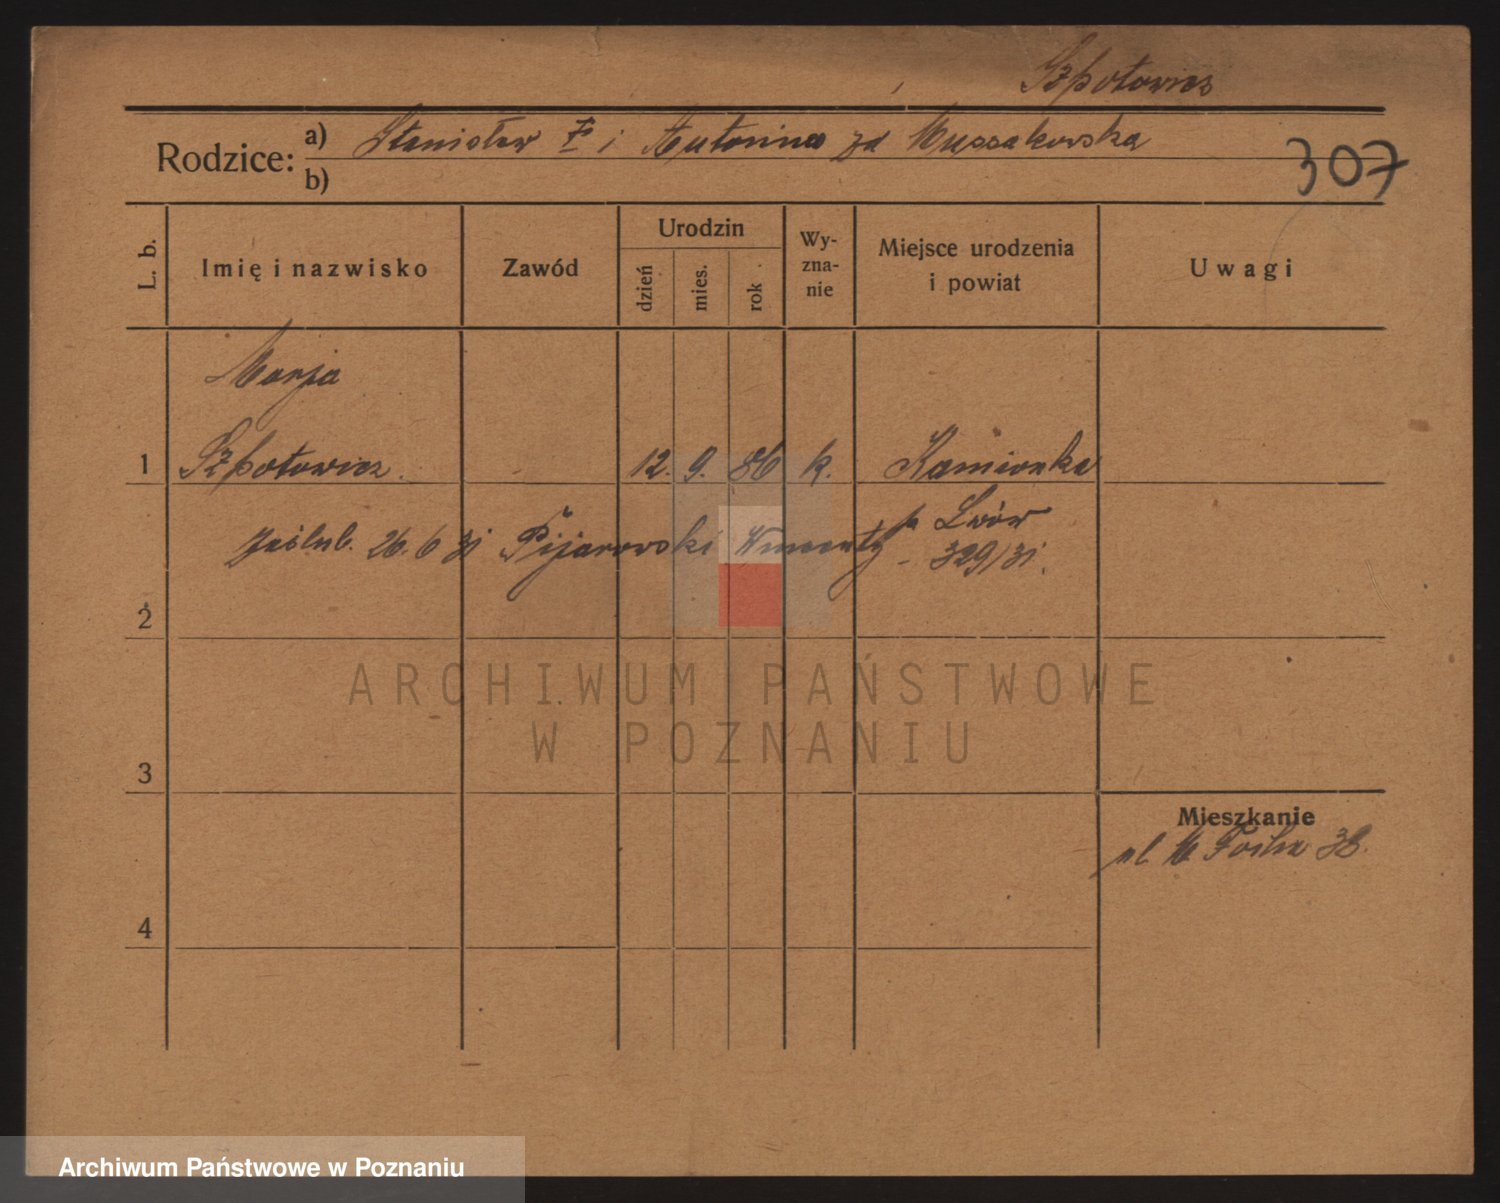 Szpotowicz
Rodzice:
a) Stanisław i Antonina zd Mussakowska
b)
307
L. b.
Imię i nazwisko
Zawód
Urodzin
dzień
mies.
rok
Wy-
zna-
nie
Miejsce urodzenia
i powiat
Uwagi
Marja
1 Szpotowicz. 12. 9. 86 k. Kamionka
Lwów
Zaślub. 26. 6 31 Pijarowski Wincenty - 329/31.
2
ARCHIWUM PAŃSTWOWE
W POZNANIU
3
Mieszkanie
ul. M Focha 38.
4
Archiwum Państwowe w Poznaniu